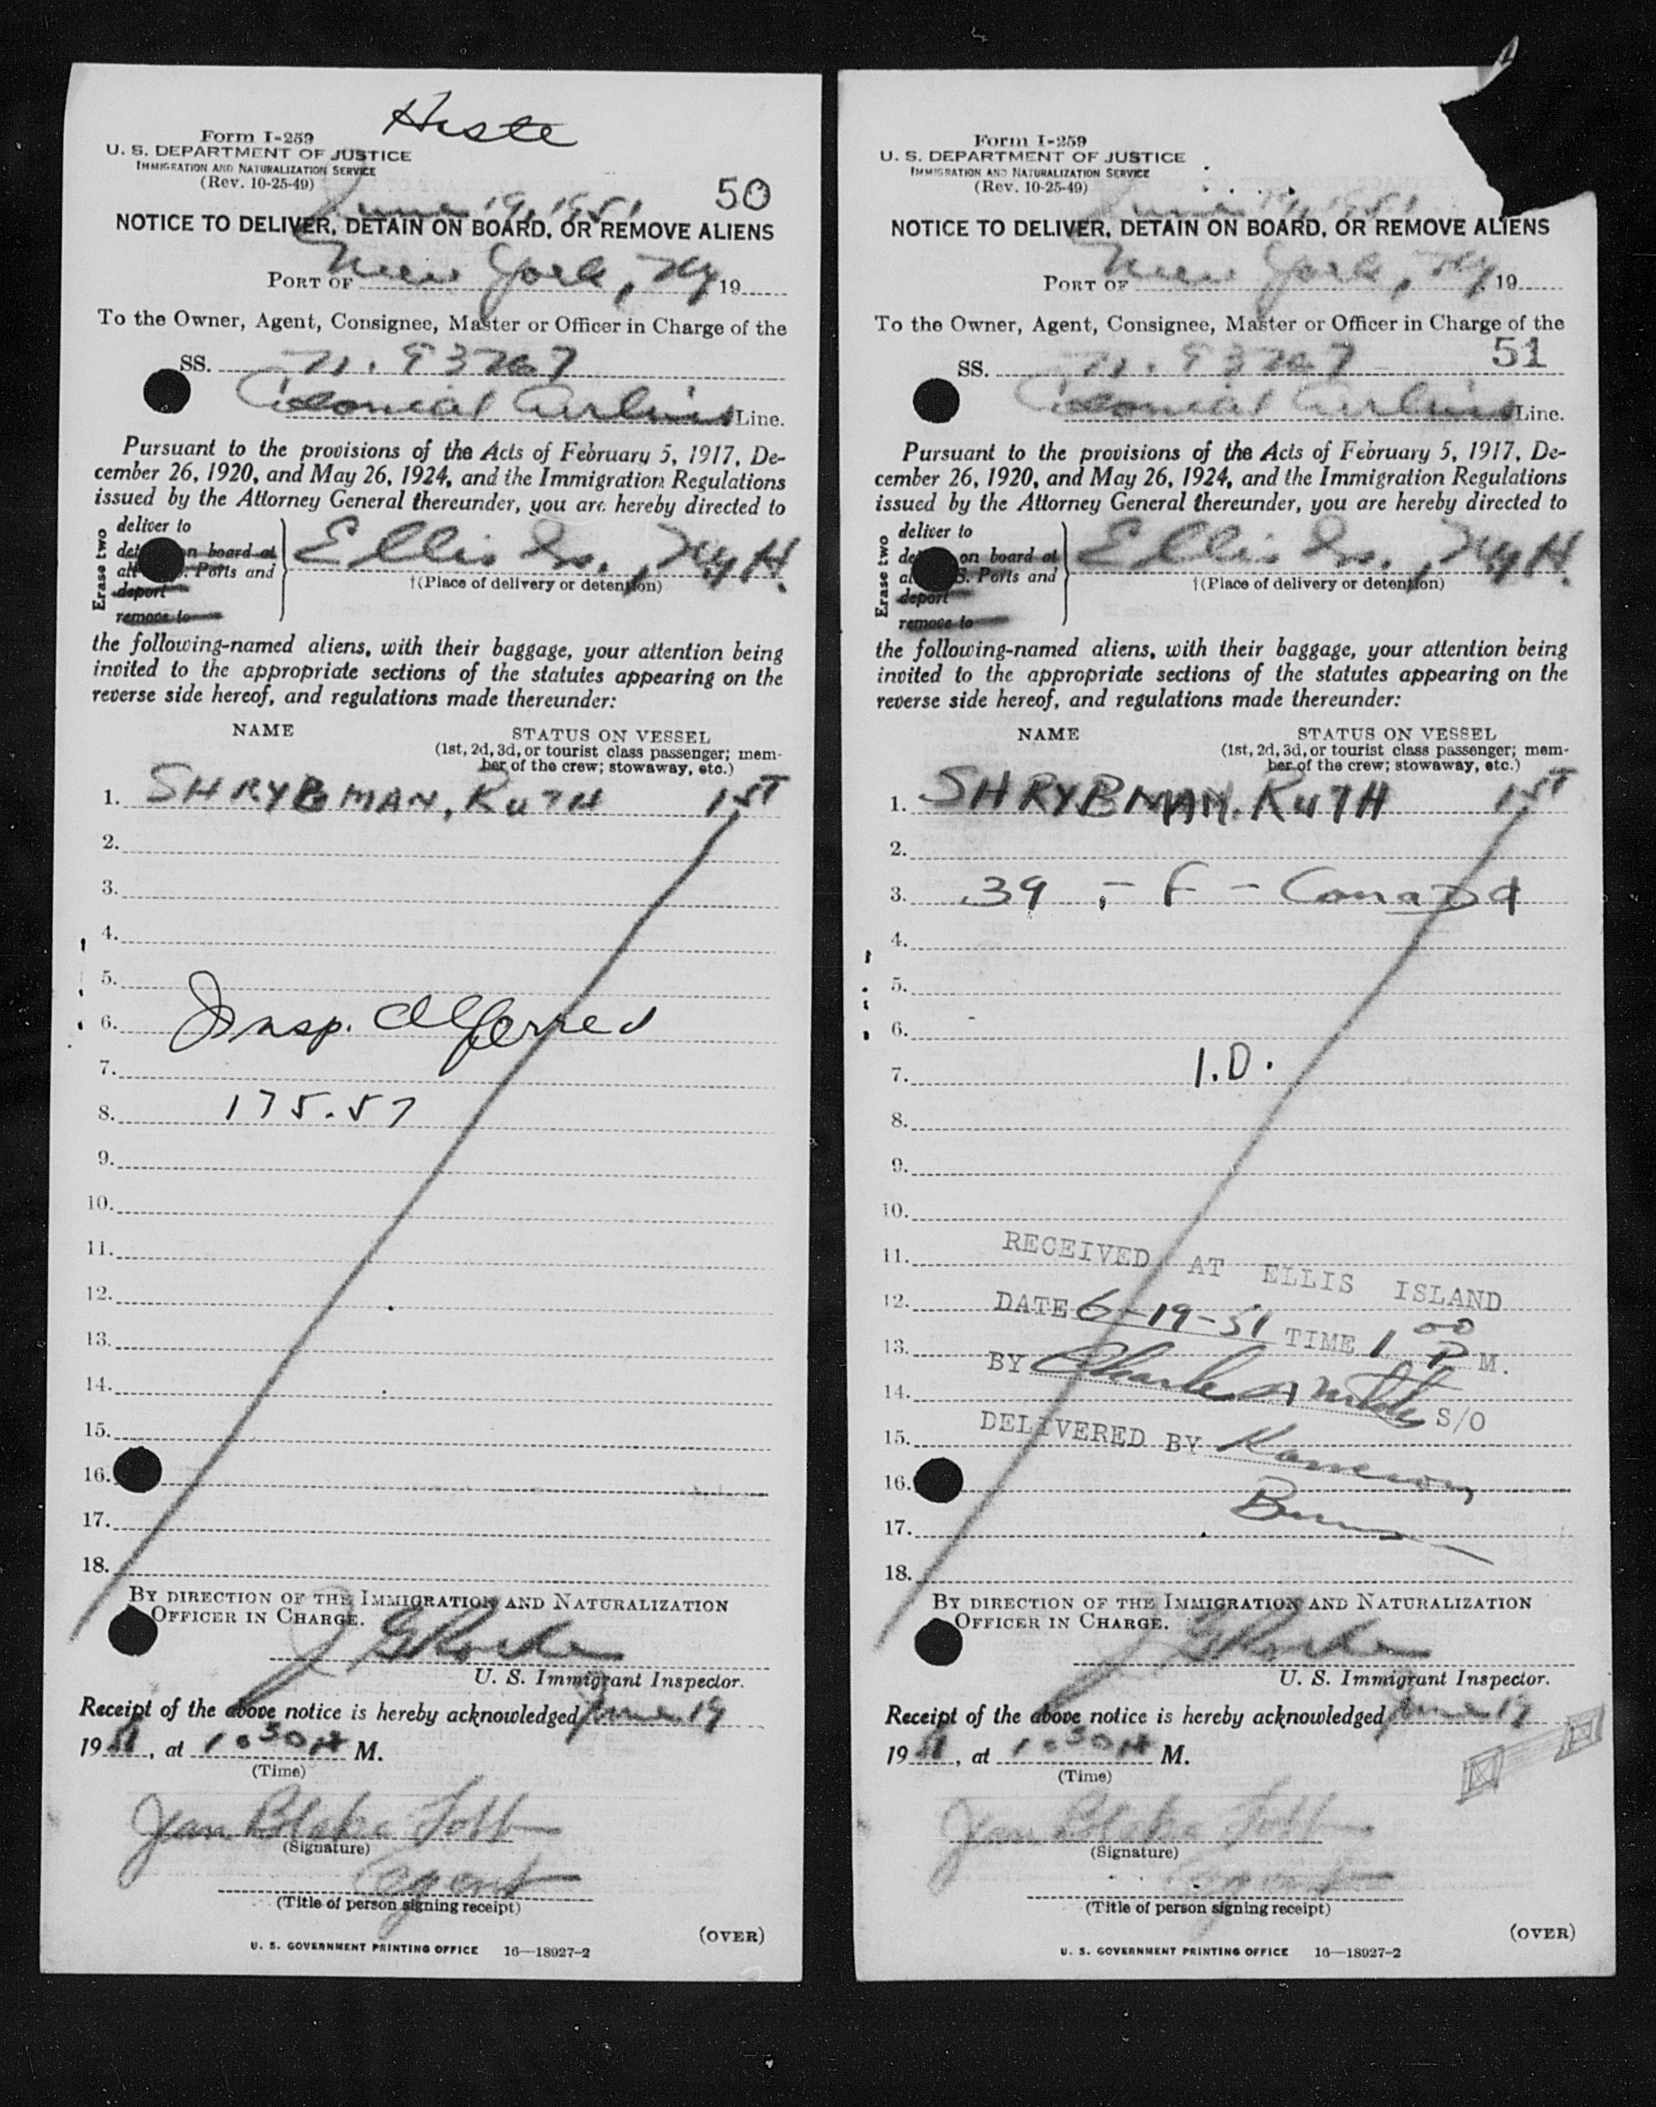 Form I-259
U. S. DEPARTMENT OF JUSTICE
IMMIGRATION AND NATURALIZATION SERVICE
(Rev. 10-25-49)
50
June 19, 1951
NOTICE TO DELIVER, DETAIN ON BOARD, OR REMOVE ALIENS
PORT OF New York, NY 19
To the Owner, Agent, Consignee, Master or Officer in Charge of the
SS. N.93267
Colonial Airlines Line.
Pursuant to the provisions of the Acts of February 5, 1917, De-
cember 26, 1920, and May 26, 1924, and the Immigration Regulations
issued by the Attorney General thereunder, you are hereby directed to
Erase two
deliver to
on board at
Ports and
deport
remove to
Ellis Is., NYH.
†(Place of delivery or detention)
the following-named aliens, with their baggage, your attention being
invited to the appropriate sections of the statutes appearing on the
reverse side hereof, and regulations made thereunder:
NAME STATUS ON VESSEL
(1st, 2d, 3d, or tourist class passenger; mem-
ber of the crew; stowaway, etc.)
1. SHRYBMAN, RUTH 1ST
2.
3.
4.
5.
6. Insp. deferred
7.
8. 175.57
9.
10.
11.
12.
13.
14.
15.
16.
17.
18.
BY DIRECTION OF THE IMMIGRATION AND NATURALIZATION
OFFICER IN CHARGE.
U. S. Immigrant Inspector.
Receipt of the above notice is hereby acknowledged June 19
19 51, at 1:30 M.
(Time)
Jan Blake
(Signature)
Agent
(Title of person signing receipt)
(OVER)
U. S. GOVERNMENT PRINTING OFFICE 16—18927-2
Form I-259
U. S. DEPARTMENT OF JUSTICE
IMMIGRATION AND NATURALIZATION SERVICE
(Rev. 10-25-49)
June 19, 1951
NOTICE TO DELIVER, DETAIN ON BOARD, OR REMOVE ALIENS
PORT OF New York, NY 19
To the Owner, Agent, Consignee, Master or Officer in Charge of the
51
SS. N.93267
Colonial Airlines Line.
Pursuant to the provisions of the Acts of February 5, 1917, De-
cember 26, 1920, and May 26, 1924, and the Immigration Regulations
issued by the Attorney General thereunder, you are hereby directed to
Erase two
deliver to
on board at
Ports and
deport
remove to
Ellis Is., NYH.
†(Place of delivery or detention)
the following-named aliens, with their baggage, your attention being
invited to the appropriate sections of the statutes appearing on the
reverse side hereof, and regulations made thereunder:
NAME STATUS ON VESSEL
(1st, 2d, 3d, or tourist class passenger; mem-
ber of the crew; stowaway, etc.)
1. SHRYBMAN, RUTH 1ST
2.
3. 39 - F - Canada
4.
5.
6.
7. I.D.
8.
9.
10.
11. RECEIVED AT ELLIS ISLAND
12. DATE 6-19-51 TIME 1 00 P M.
13. BY Charles S/O
14.
15. DELIVERED BY
16.
17.
18.
BY DIRECTION OF THE IMMIGRATION AND NATURALIZATION
OFFICER IN CHARGE.
U. S. Immigrant Inspector.
Receipt of the above notice is hereby acknowledged June 19
19 51, at 1:30 M.
(Time)
Jan Blake
(Signature)
Agent
(Title of person signing receipt)
(OVER)
U. S. GOVERNMENT PRINTING OFFICE 16—18927-2